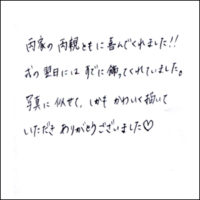 両家の両親ともに喜んでくれました!!
式の翌日にはすでに飾ってくれていました。
写真に似せて、しかもかわいく描いて
いただきありがとうございました♡